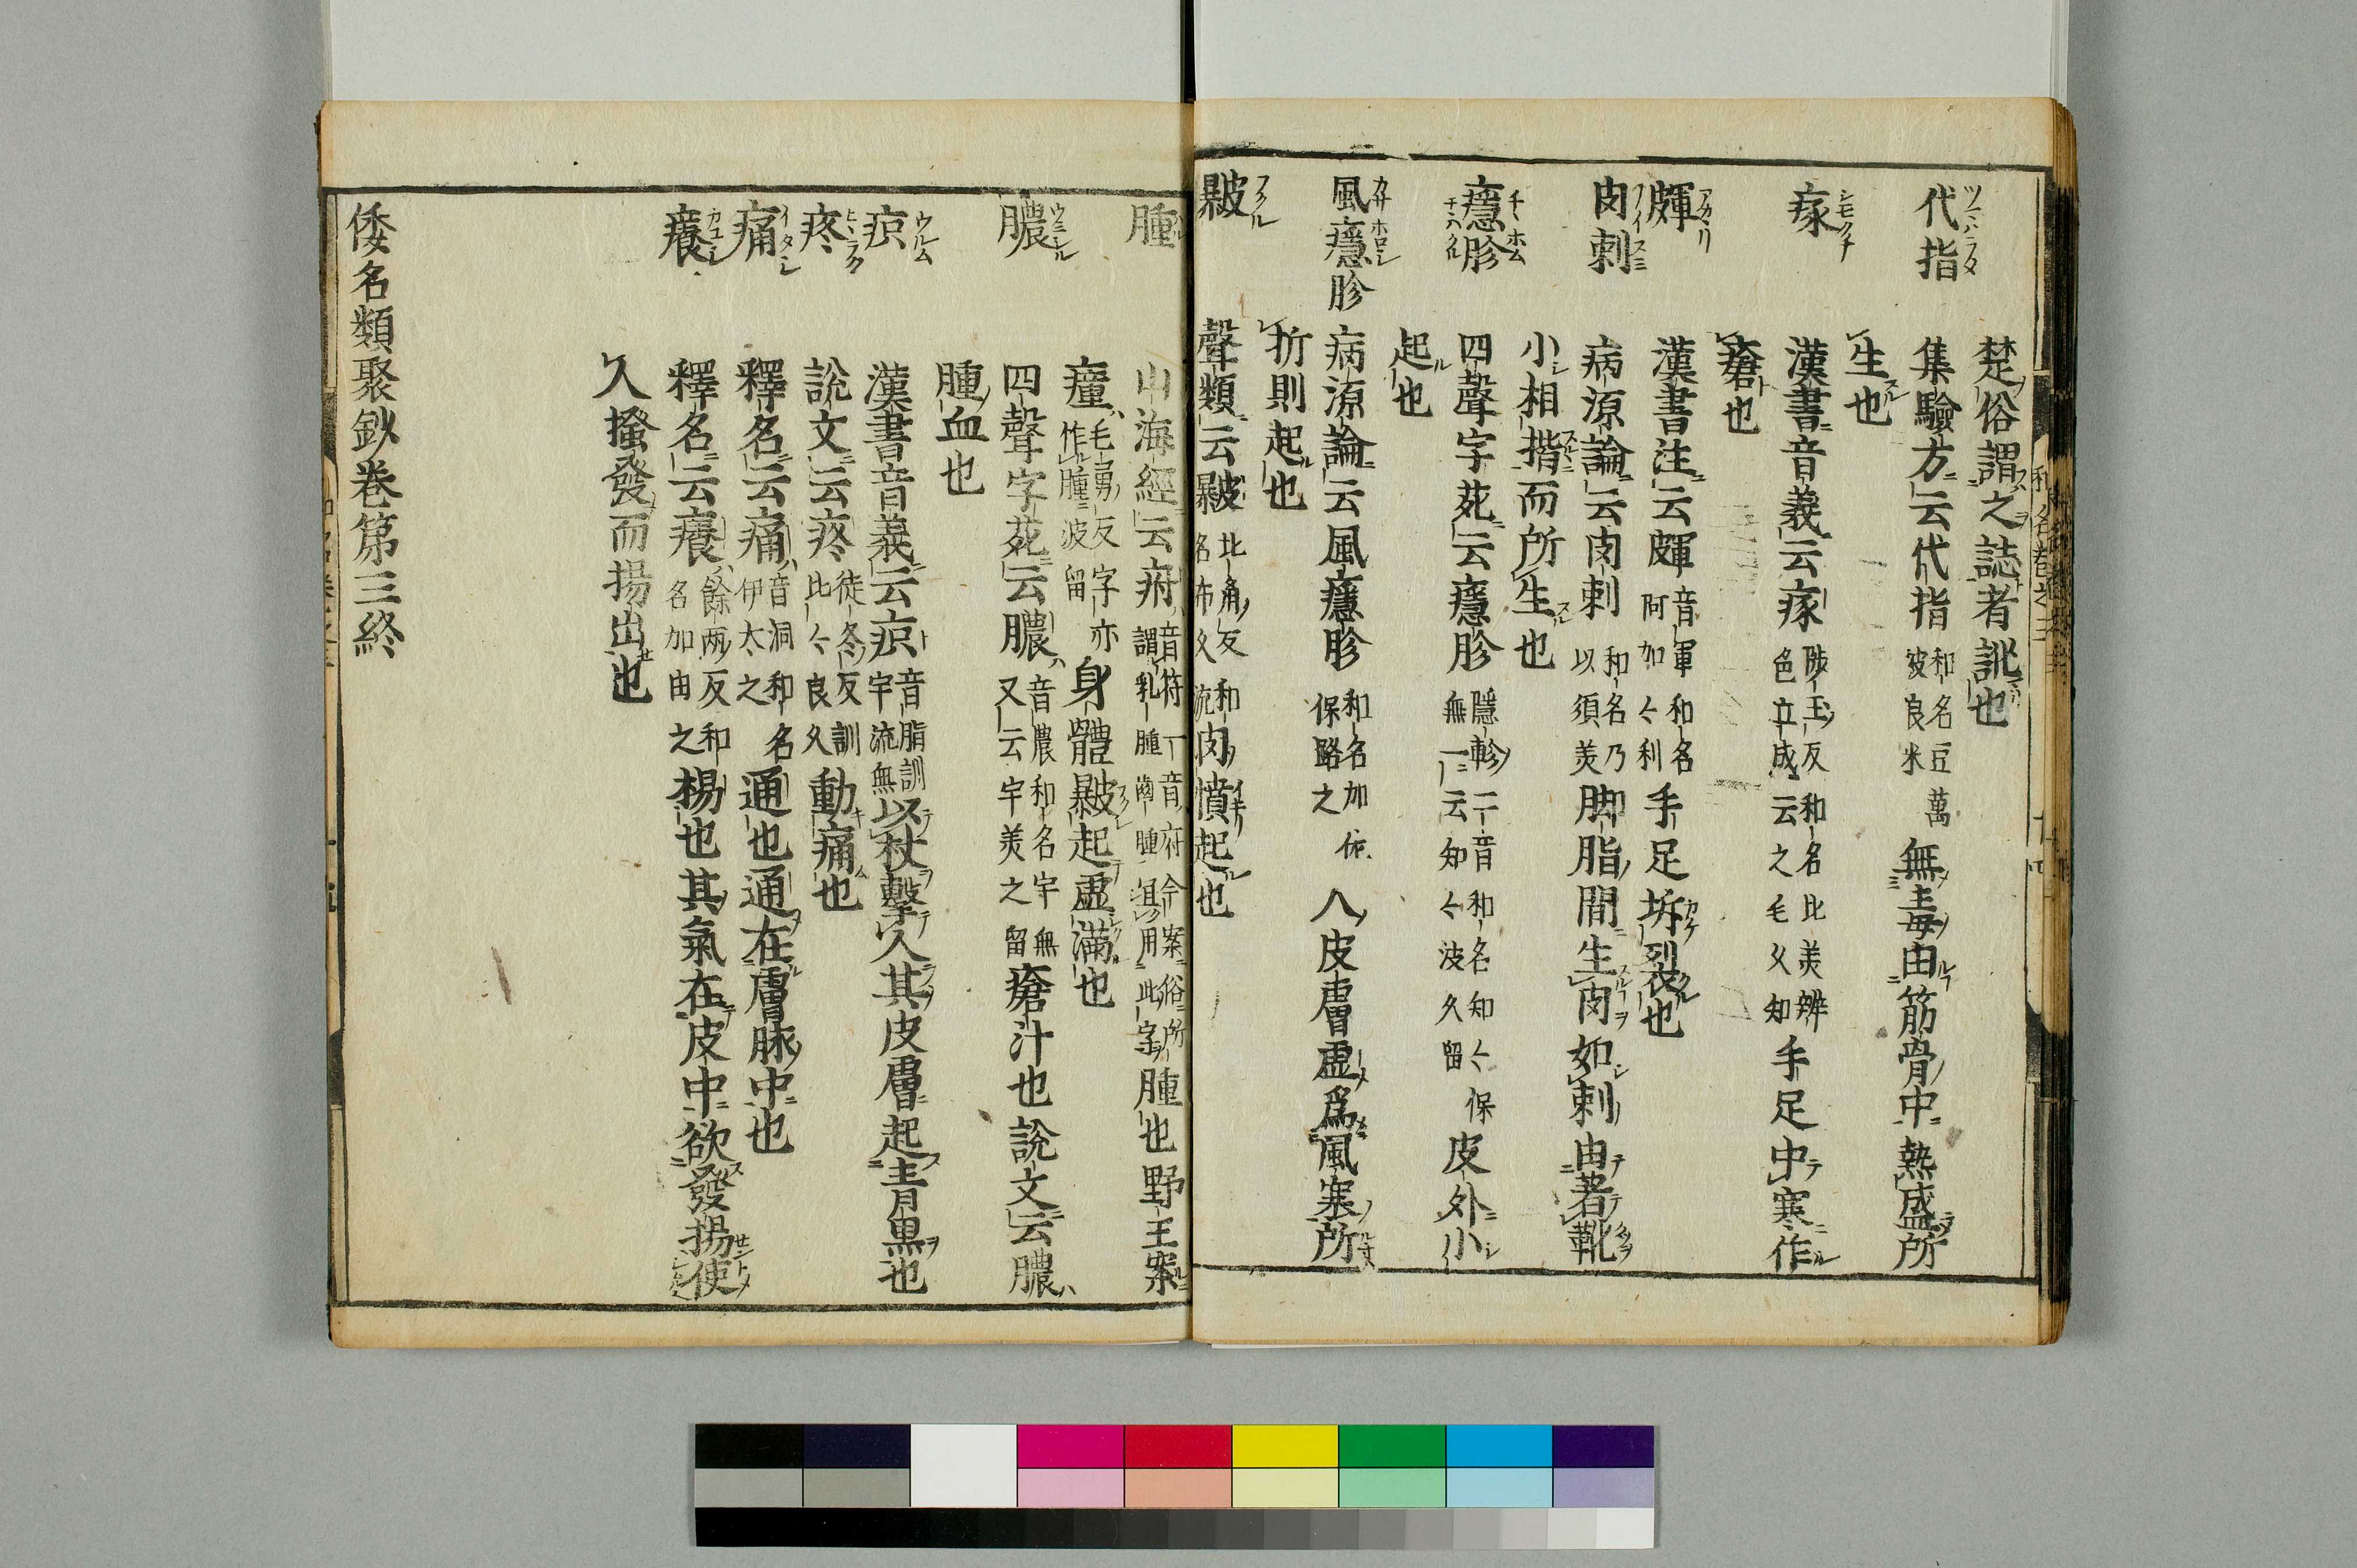 楚俗謂之誌者訛也
代指 集驗方云代指 和名豆萬波良米 無毒由筋骨中熱盛所
生也
瘃 漢書音義云瘃 陟玉反和名比美辨色立成云之毛久知 手足中寒作
瘡也
皸 漢書注云皸 音軍和名阿加々利 手足坼裂也
肉刺 病源論云肉刺 和名乃以須美 脚脂間生肉如刺由著靴
小相揩而所生也
癮胗 四聲字苑云癮胗 隱軫二音和名知々保無一云知々波久留 皮外小
起也
風癮胗 病源論云風癮胗 和名加佐保路之 人皮膚虛爲風寒所
折則起也
㿺 聲類云㿺 北角反和名布久流 肉憤起也
腫 山海經云疛 音符一音府今案俗所謂乳腫𦡀腫俱用此字 腫也野王案
瘇 毛勇反字亦作腫波留 身體㿺起虛滿也
膿 四聲字苑云膿 音農和名宇無又云宇美之留 瘡汁也說文云膿
腫血也
㾗 漢書音義云㾗 音脂訓宇流無 以杖擊人其皮膚起青黒也
疼 說文云疼 徒冬反訓比々良久 動痛也
痛 釋名云痛 音洞和名伊太之 通也通在膚脉中也
癢 釋名云癢 餘兩反和名加由之 楊也其氣在皮中欲發揚使
人搔發而揚出也
倭名類聚鈔卷第三終